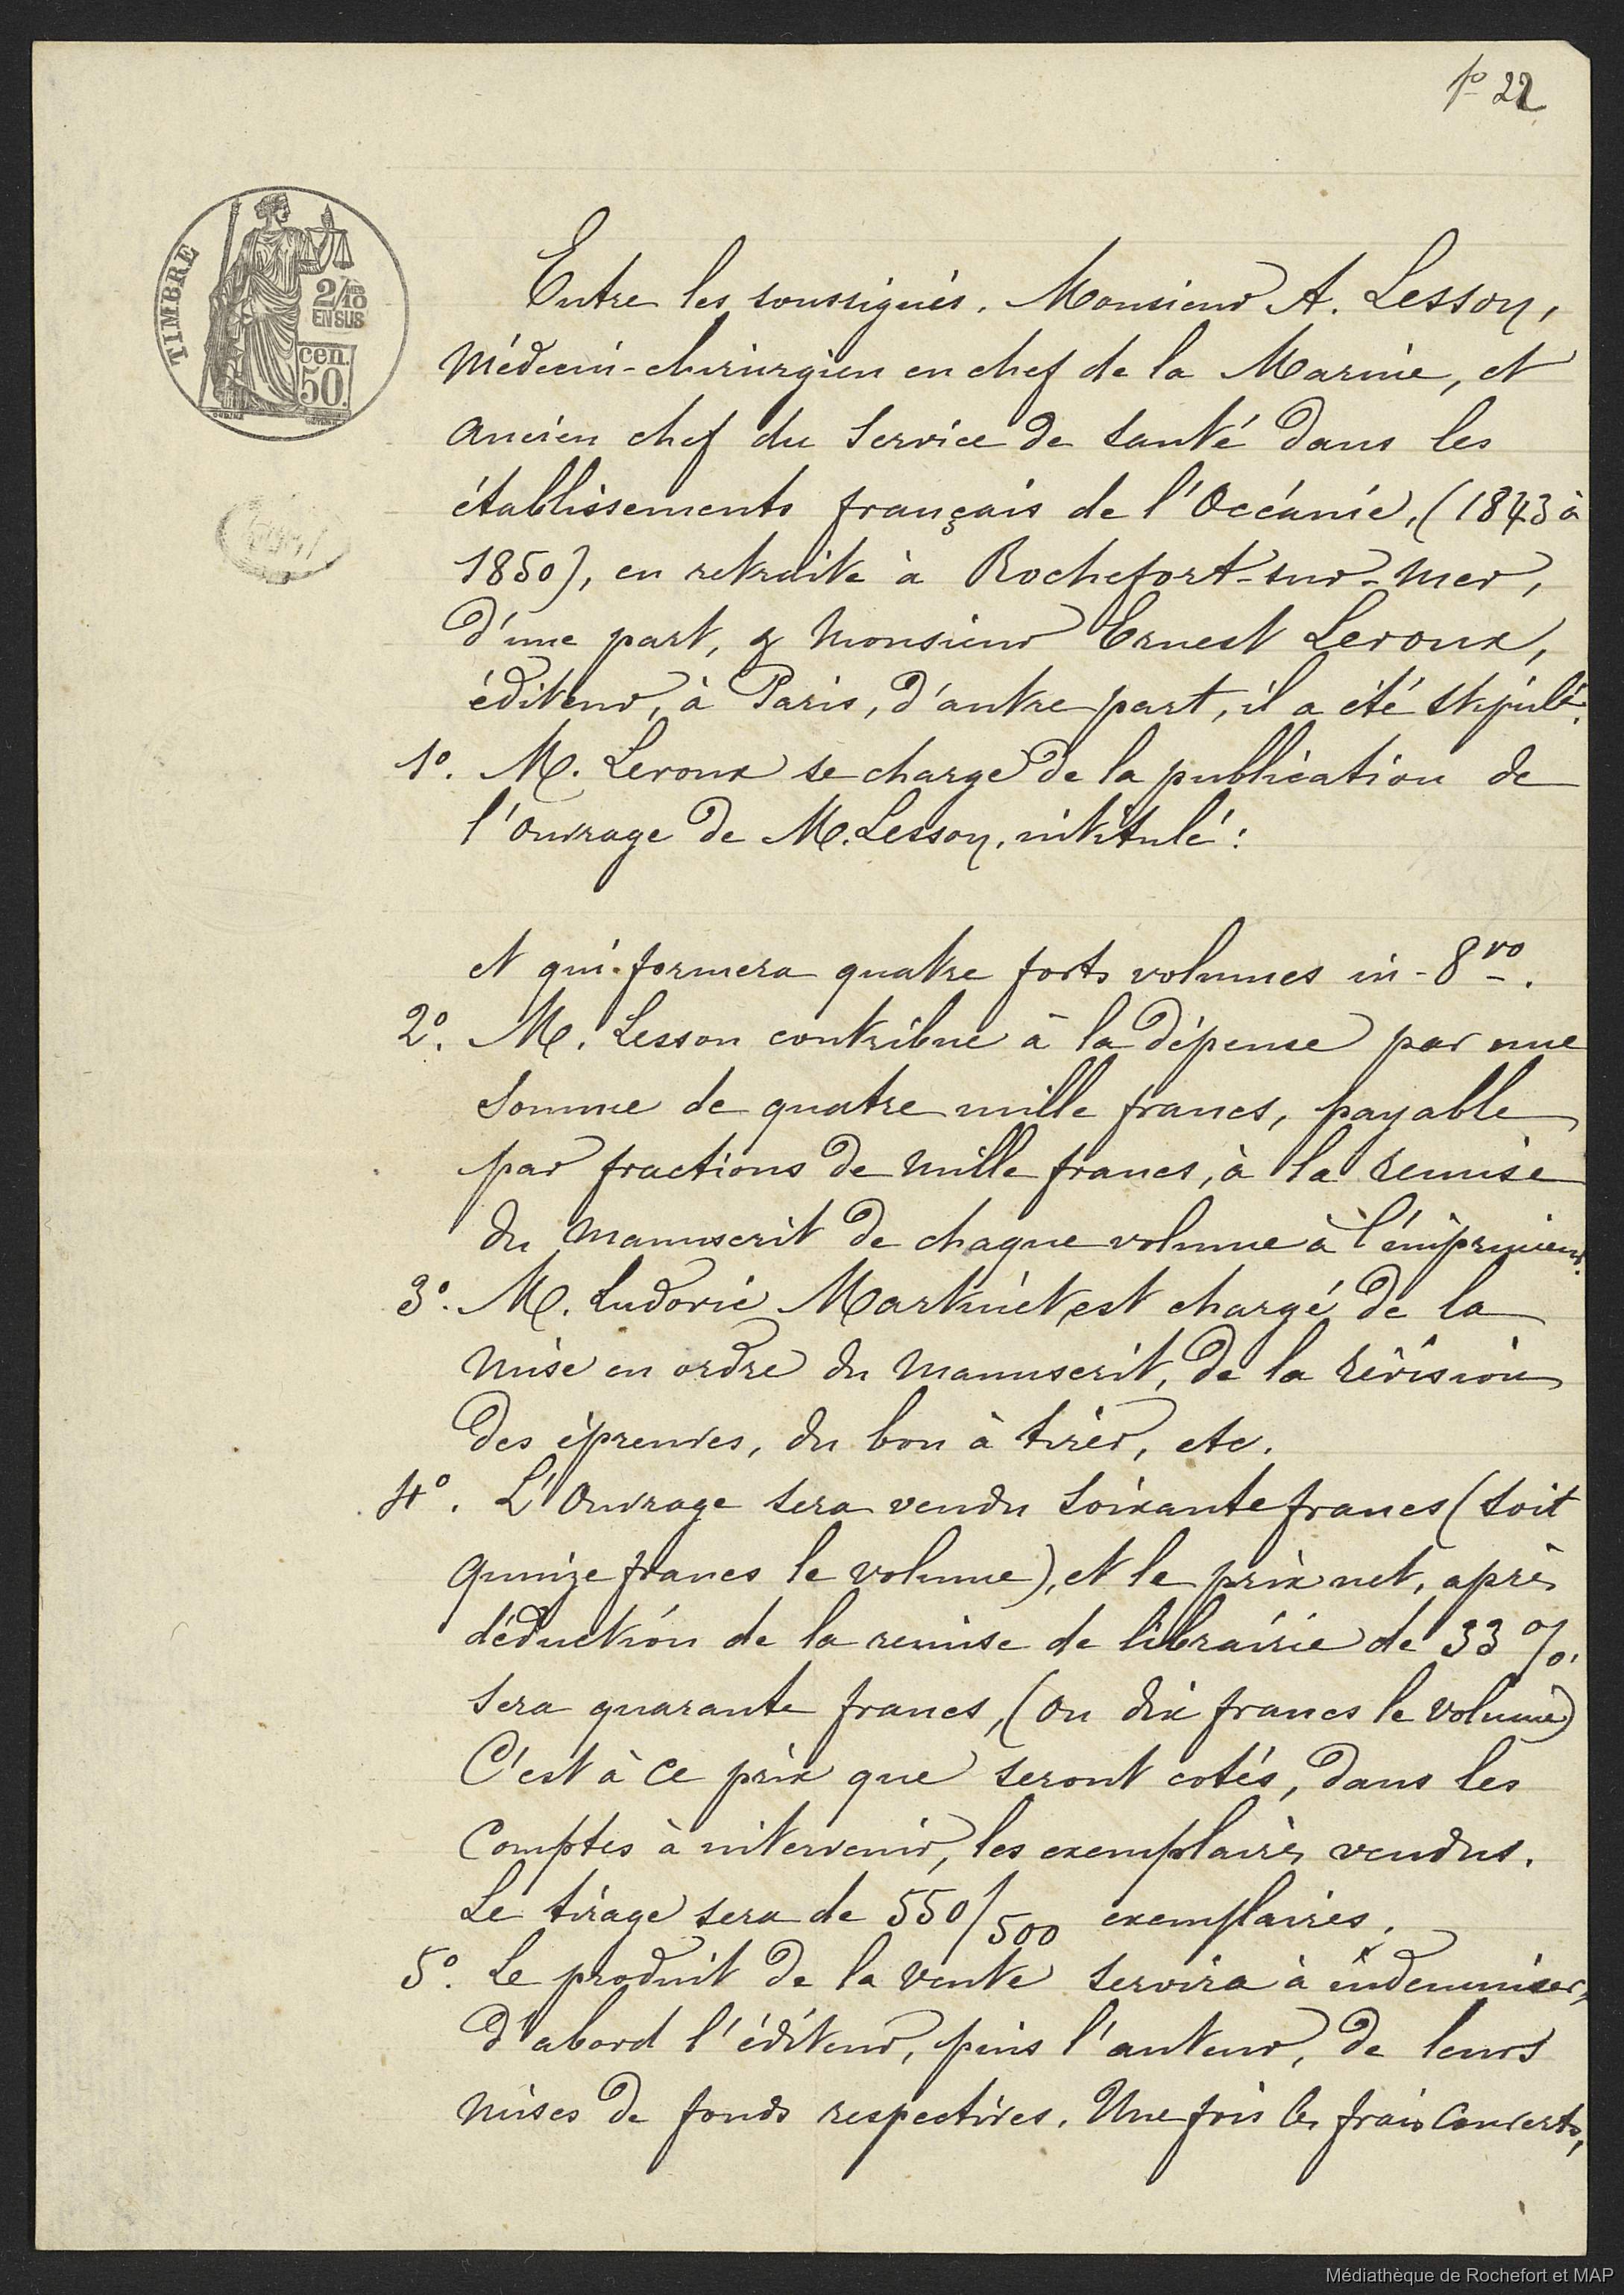 fo 22
TIMBRE
2/10
EN SUS
cen.
50.
Entre les soussignés. Monsieur A. Lesson,
Médecin-chirurgien en chef de la Marine, et
ancien chef du Service de santé dans les
établissements français de l'Océanie, (1843 à
1850), en retraite à Rochefort-sur-Mer,
d'une part, & Monsieur Ernest Leroux,
éditeur, à Paris, d'autre part, il a été stipulé.
1º. M. Leroux se charge de la publication de
l'Ouvrage de M. Lesson, intitulé :
et qui formera quatre forts volumes in-8vo.
2º. M. Lesson contribue à la dépense par une
Somme de quatre mille francs, payable
par fractions de mille francs, à la remise
du Manuscrit de chaque volume à l'imprimeur.
3º. M. Ludovic Martinet est chargé de la
mise en ordre du Manuscrit, de la révision
des épreuves, du bon à tirer, etc.
4º. L'Ouvrage sera vendu soixante francs (soit
quinze francs le volume), et le prix net, après
déduction de la remise de librairie de 33 %.
sera quarante francs, (ou dix francs le volume)
C'est à ce prix que seront cotés, dans les
Comptes à intervenir, les exemplaires vendus.
Le tirage sera de 550/500 exemplaires.
5º. Le produit de la vente servira à indemniser,
d'abord l'éditeur, puis l'auteur, de leurs
mises de fonds respectives. Une fois les frais couverts,
Médiathèque de Rochefort et MAP